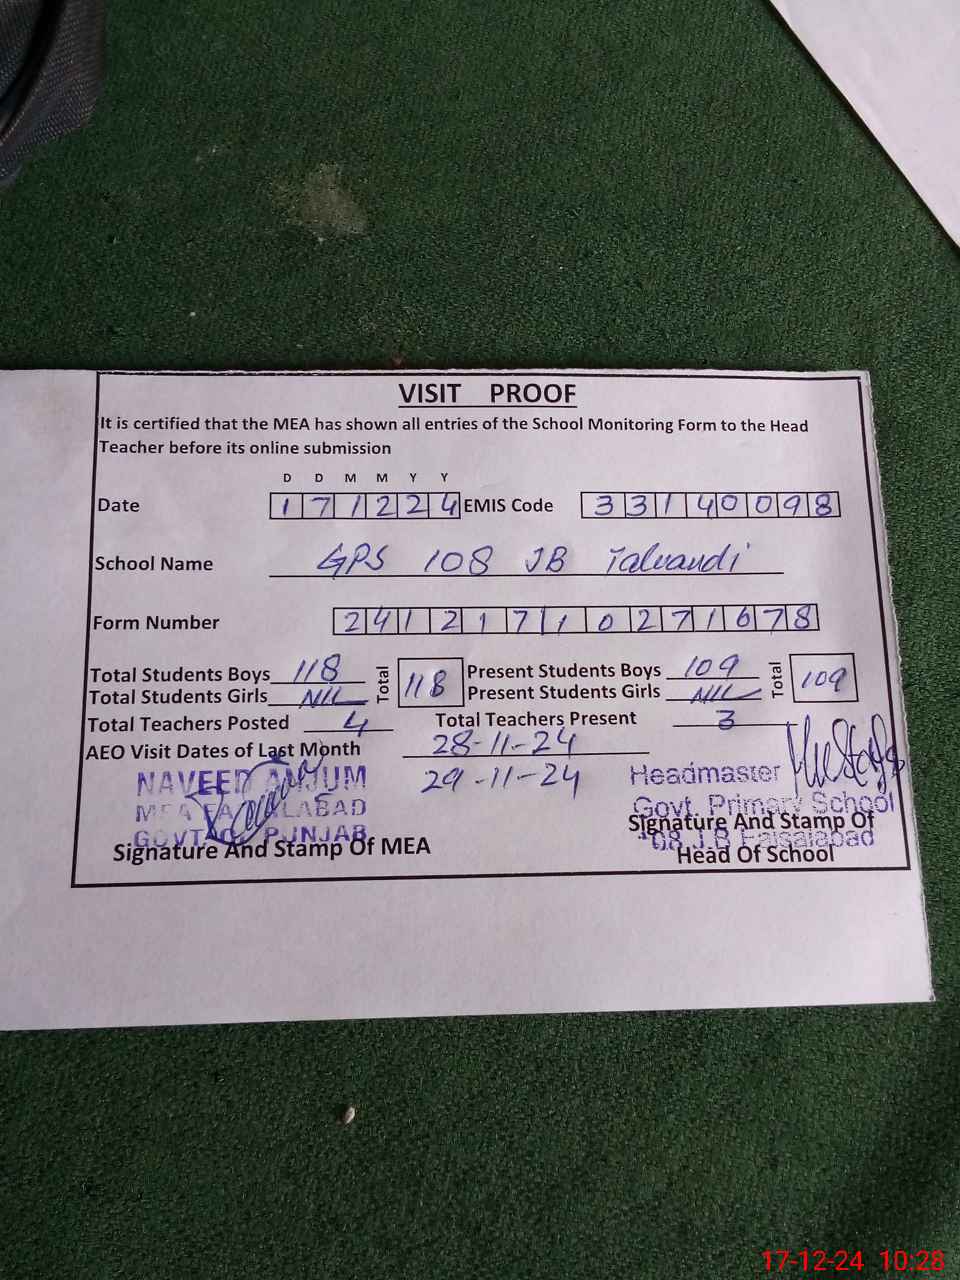 VISIT PROOF
It is certified that the MEA has shown all entries of the School Monitoring Form to the Head
Teacher before its online submission
D D M M Y Y
Date 171224 EMIS Code 33140098
School Name GPS 108 JB Talwandi
Form Number 241217110271678
Total Students Boys 118 Total 118 Present Students Boys 109 Total 109
Total Students Girls NIL Present Students Girls NIL
Total Teachers Posted 4 Total Teachers Present 3
AEO Visit Dates of Last Month 28-11-24
29-11-24
NAVEED ANJUM
MEA FAISALABAD
GOVT. OF PUNJAB
Signature And Stamp Of MEA
Headmaster
Govt. Primary School
108 J.B Faisalabad
Signature And Stamp Of
Head Of School
17-12-24 10:28